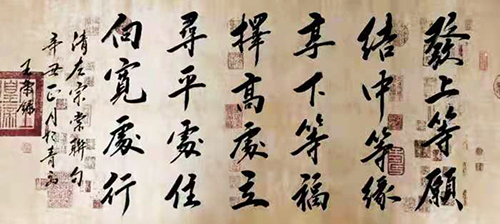 發上等願
結中等緣
享下等福
擇高處立
尋平處住
向寬處行
清左宗棠聯句
辛丑正月於青島